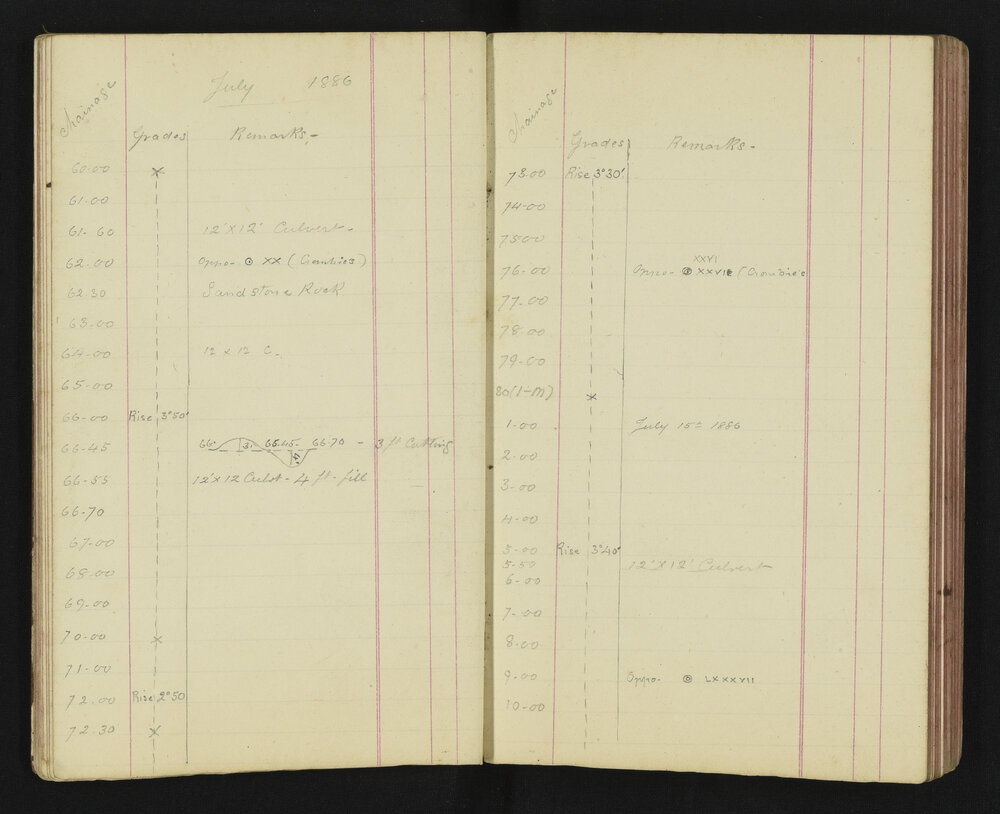 July 1886
Chainage
Grades Remarks -
60.00 x
61.00
61-60 12'X12' Culvert -
62.00 Oppo- ⊙ XX (Crombies)
62.30 Sandstone Rock
63.00
64-00 12 x 12 C.
65-00
66-00 Rise 3°50'
66-45 66· 3' 66.45- 66.70 - 3 ft Cutting
66-55 12'x12 Culvt - 4 ft - fill
66-70
67-00
68.00
69-00
70-00 x
71-00
72.00 Rise 2°50
72.30 x
Chainage
Grades Remarks -
73.00 Rise 3°30'
74-00
75.00
XXVI
76-00 Oppo- ⊙ (Crombies
77-00
78.00
79-00
80(1-M) x
1-00 July 15th 1886
2-00
3-00
4-00
5-00 Rise 3°40'
5-50 12'X12' Culvert
6-00
7-00
8-00
9-00 Oppo- ⊙ LXXXVII
10-00